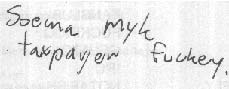 Soema myk
taxpayer Fuckery.